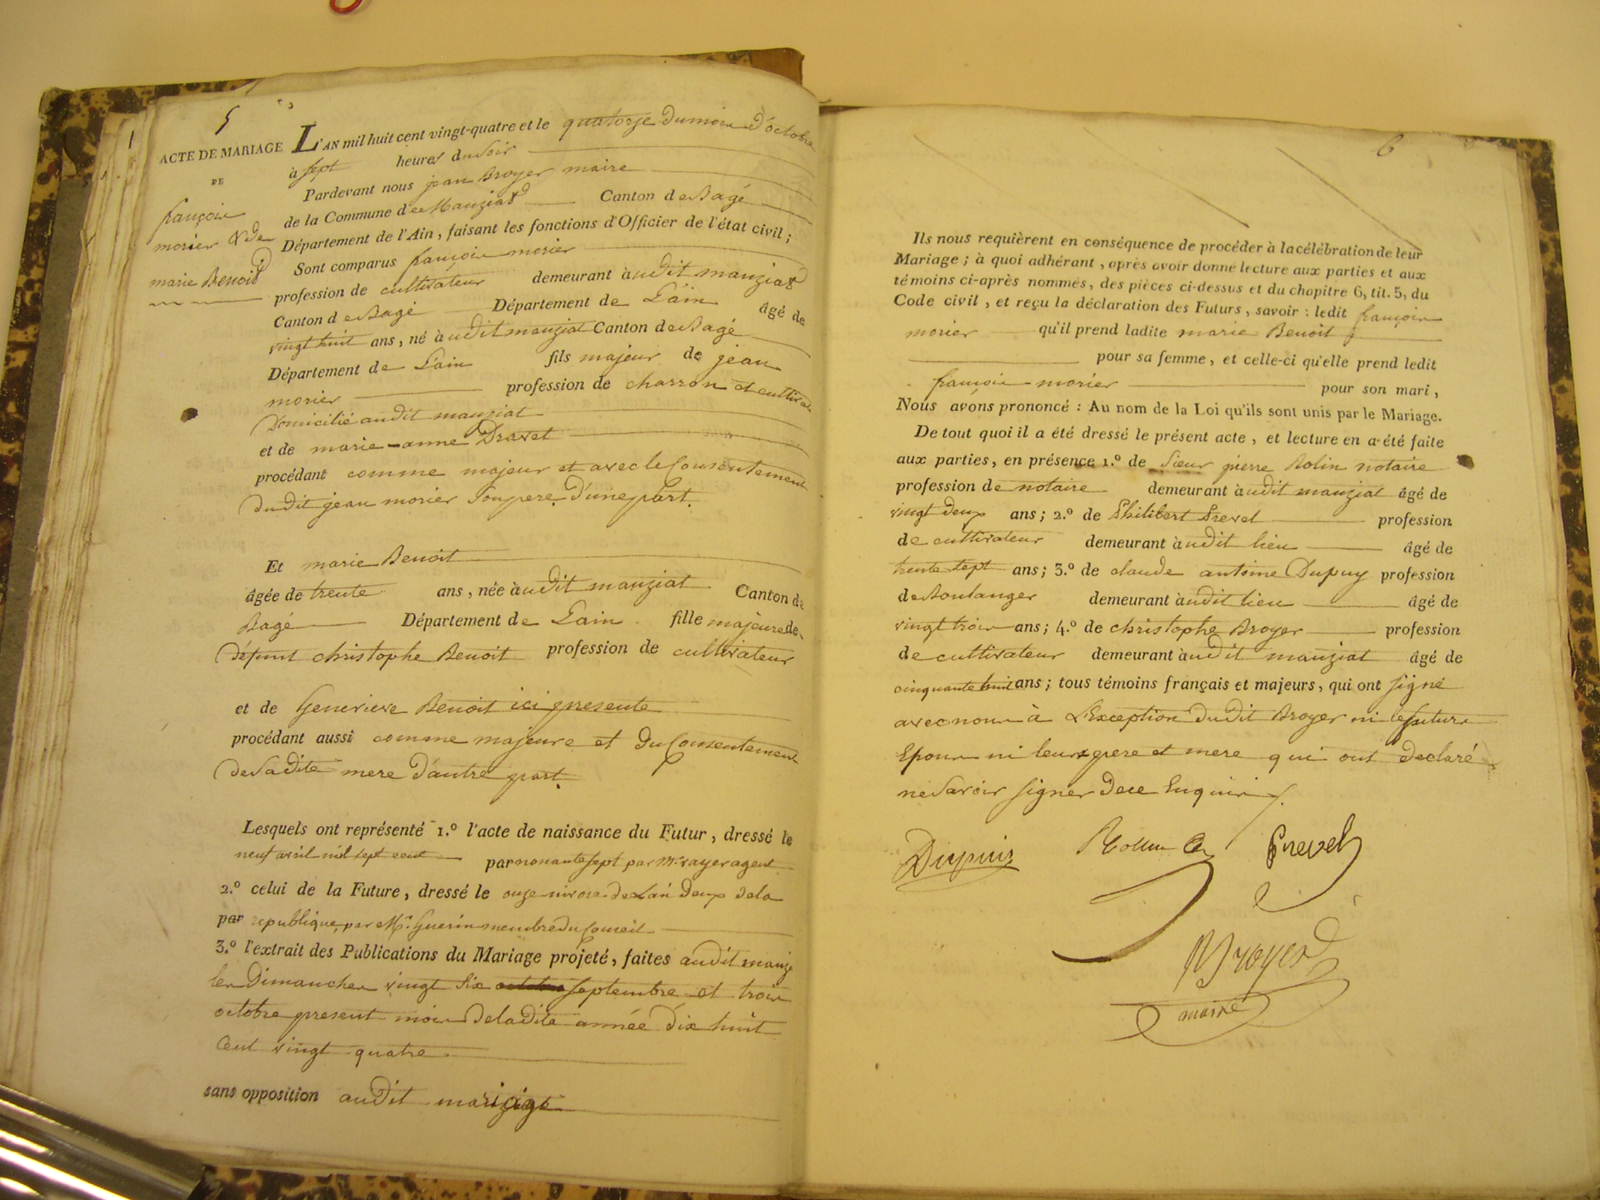 5
ACTE DE MARIAGE
DE
françois
morier & de
marie Benoit
L'AN mil huit cent vingt-quatre et le quatorze du mois d'octobre
à sept heures du soir
Pardevant nous jean Broyer maire
de la Commune de Manziat Canton de Bagé
Département de l'Ain, faisant les fonctions d'Officier de l'état civil;
Sont comparus françois morier
profession de cultivateur demeurant audit manziat
Canton de Bagé Département de L'ain âgé de
vingt huit ans, né audit manziat Canton de Bagé
Département de L'ain fils majeur de jean
morier profession de charron et cultivat
Domicilié audit manziat
et de marie-anne Dravet
procédant comme majeur et avec le Consentement
dudit jean morier son pere, d'une part.
Et marie Benoit
âgée de trente ans, née audit manziat Canton de
Bagé Département de L'ain fille majeure de
défunt christophe Benoit profession de cultivateur
et de Genevieve Benoit ici presente
procédant aussi comme majeure et du Consentement
de Sadite mere d'autre part.
Lesquels ont représenté 1.º l'acte de naissance du Futur, dressé le
neuf avril mil sept cent par nonante sept par Mr. sayer agent
2.º celui de la Future, dressé le onze nivose de L'an deux de la
par republique, par Mr. Guerin membre du Conseil
3.º l'extrait des Publications du Mariage projeté, faites audit manz
les Dimanches vingt Six septembre et trois
octobre present mois de ladite année dix huit
Cent vingt quatre
sans opposition audit mariage
6
Ils nous requièrent en conséquence de procéder à la célébration de leur
Mariage; à quoi adhérant, après avoir donné lecture aux parties et aux
témoins ci-après nommés, des pièces ci-dessus et du chapitre 6, tit. 5, du
Code civil, et reçu la déclaration des Futurs, savoir: ledit françois
morier qu'il prend ladite marie Benoit
pour sa femme, et celle-ci qu'elle prend ledit
françois morier pour son mari,
Nous avons prononcé: Au nom de la Loi qu'ils sont unis par le Mariage.
De tout quoi il a été dressé le présent acte, et lecture en a été faite
aux parties, en présence 1.º de Sieur pierre Rolin notaire
profession de notaire demeurant audit manziat âgé de
vingt deux ans; 2.º de Philibert Prevel profession
de cultivateur demeurant audit lieu âgé de
trente sept ans; 3.º de claude antoine Dupuy profession
de Boulanger demeurant audit lieu âgé de
vingt trois ans; 4.º de christophe Broyer profession
de cultivateur demeurant audit manziat âgé de
cinquante huit ans; tous témoins français et majeurs, qui ont signé
avec nous à L'Exception dudit Broyer ni les futurs
Epoux ni leurs pere et mere qui ont declaré
ne Savoir signer de ce Enquis.
Dupuis Prevel
Broyer
maire